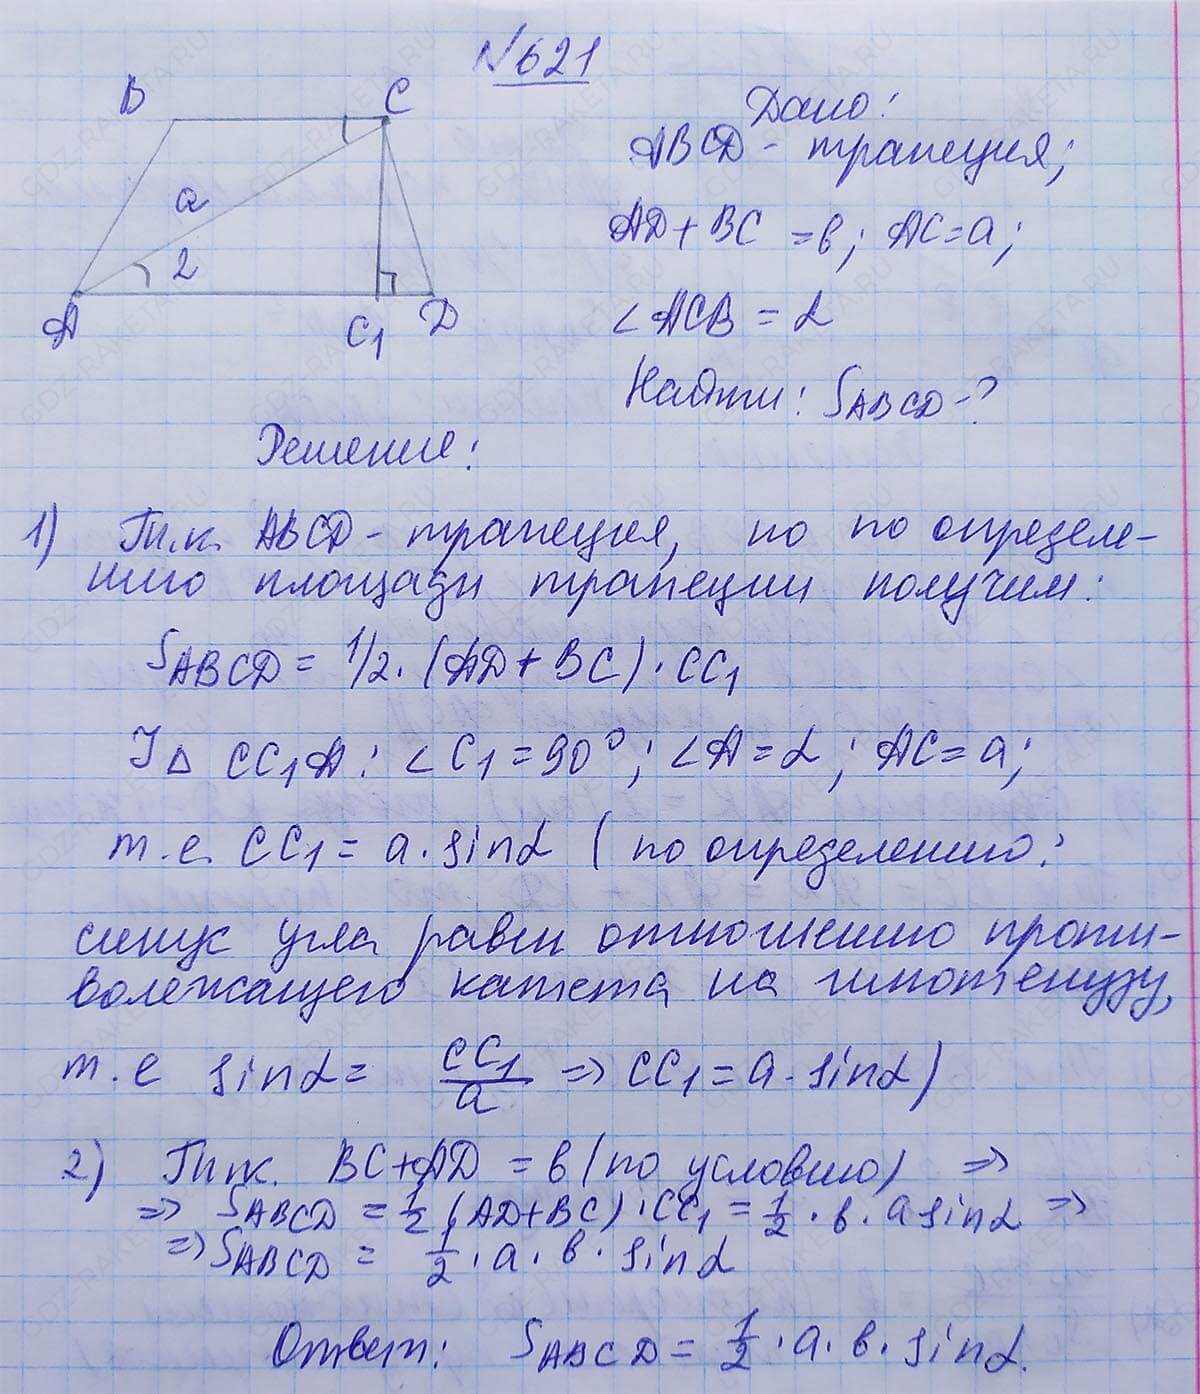 №621
B
C
a
2
A
C1
D
Дано:
ABCD - трапеция;
AD + BC = в; AC = a;
∠ACB = α
Найти: SABCD - ?
Решение:
1) Т.к. ABCD - трапеция, то по определе-
нию площади трапеции получим:
SABCD = 1/2 · (AD + BC) · CC1
Із CC1A: ∠C1 = 90°; ∠A = α; AC = a;
т.е. CC1 = a · sinα (по определению:
синус угла равен отношению проти-
волежащего катета на гипотенузу,
т.е sinα = CC1/a => CC1 = a · sinα)
2) Т.к. BC + AD = в (по условию) =>
=> SABCD = 1/2 (AD + BC) · CC1 = 1/2 · в · a sinα =>
=> SABCD = 1/2 · a · в · sinα
Ответ: SABCD = 1/2 · a · в · sinα.